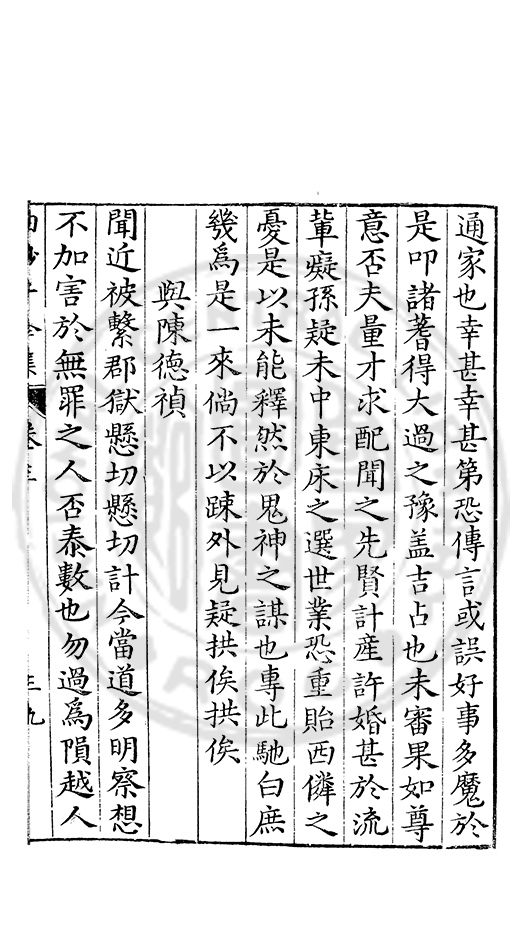 通家也幸甚幸甚第恐傳言或誤好事多魔於
是叩諸蓍得大過之豫盖吉占也未審果如尊
意否夫量才求配聞之先賢計産許婚甚於流
軰癡孫疑未中東床之選世業恐重貽西隣之
憂是以未能釋然於鬼神之謀也專此馳白庶
幾爲是一來倘不以踈外見疑拱俟拱俟
與陳德禎
聞近被繫郡獄懸切懸切計今當道多明察想
不加害於無罪之人否泰數也勿過爲隕越人
集 卷三 三九